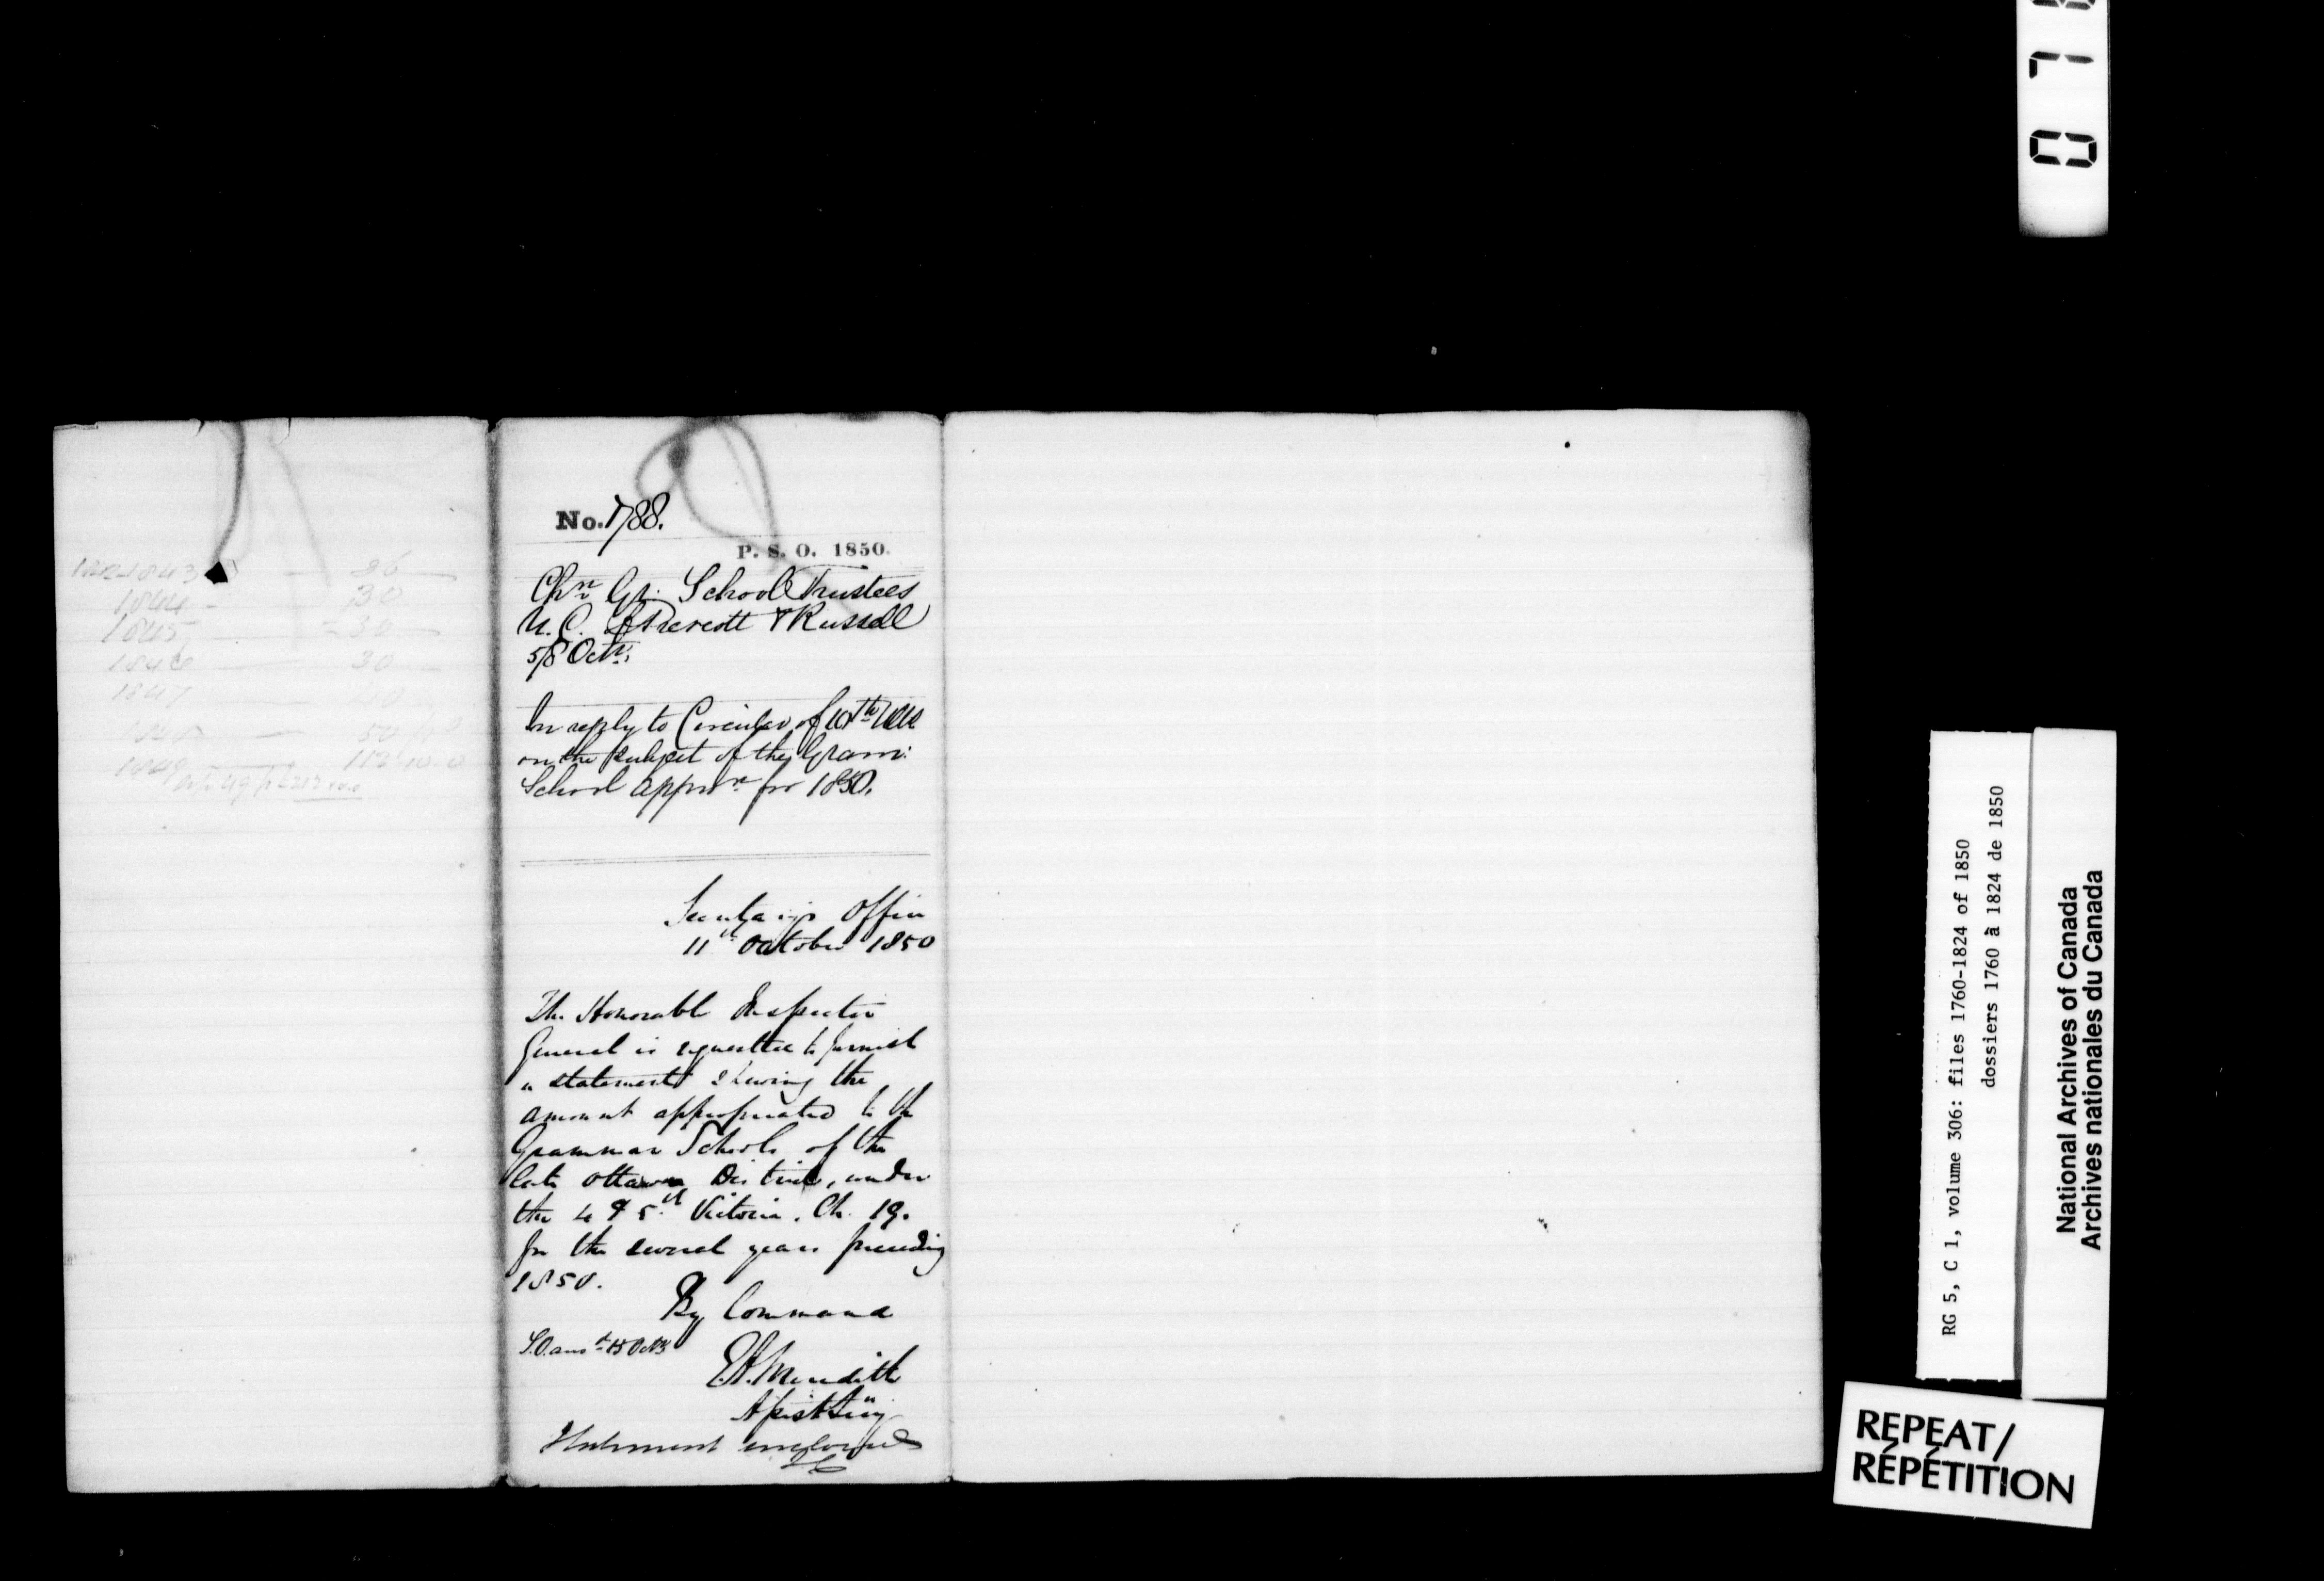 1843 — 86
1844 — 30
1845 — 30
1846 — 30
1847 — 40
50
1849 112 10 0
No. 1788.
P. S. O. 1850.
Chn. Gr. School Trustees
U. C. of Prescott & Russell
5/8 Octr.
In reply to Circular of 10th
on the subject of the Gram:
School Apprn for 1850.
Secretary's Office
11th October 1850
The Honorable Inspector
General is requested to furnish
a statement shewing the
amount appropriated to the
Grammar Schools of the
late Ottawa District, under
the 4 & 5th Victoria. Ch. 19.
for the several years preceding
1850.
By Command
E.A. Meredith
Assist Secy
Statement enclosed
078
RG 5, C 1, volume 306: files 1760-1824 of 1850
dossiers 1760 à 1824 de 1850
National Archives of Canada
Archives nationales du Canada
REPEAT/
RÉPÉTITION